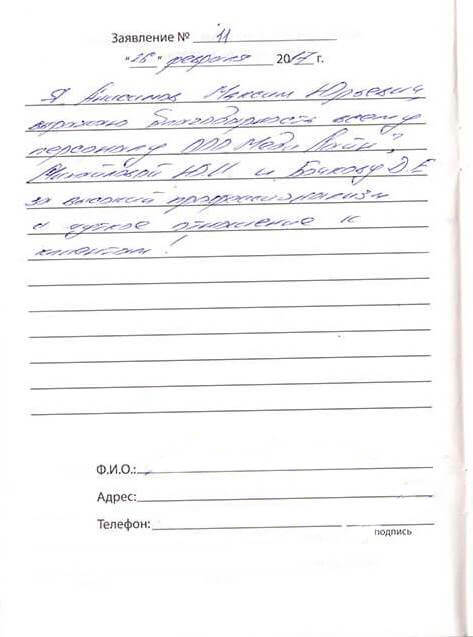 Заявление № 11
"16" февраля 2017 г.
Я Анисимов Максим Юрьевич,
выражаю благодарность всему
персоналу ООО Меди Лайн",
Михайловой Ю.И и Бойкову Д.Е
за высокий профессионализм
и чуткое отношение к
клиентам!
Ф.И.О.:
Адрес:
Телефон:
подпись